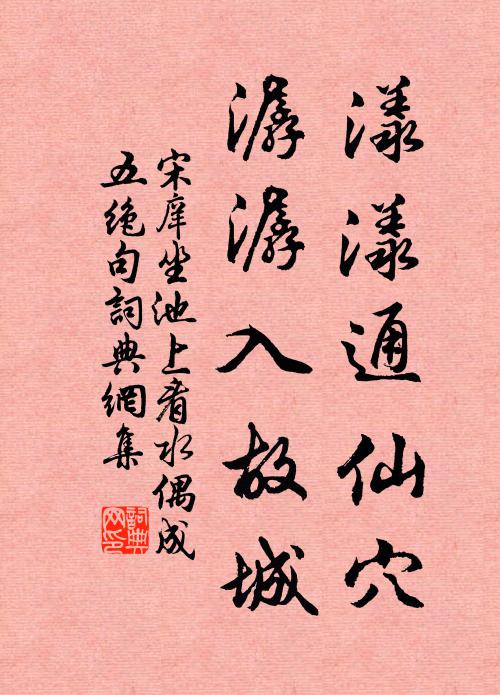 漾漾通仙穴
潺潺入故城
宋庠坐池上看水偶成
五絕句詞典網集
詞典
网印